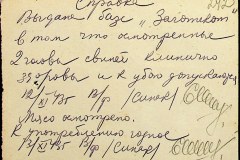 Справка
Выдана базе „Заготскот"
в том что осмотренные
2 головы свиней клинично
здоровы и к убою допускаются
12/XI 45 В/ф (Синак)
Мясо осмотрено.
К употреблению годное
12/XI 45 В/ф (Синак)